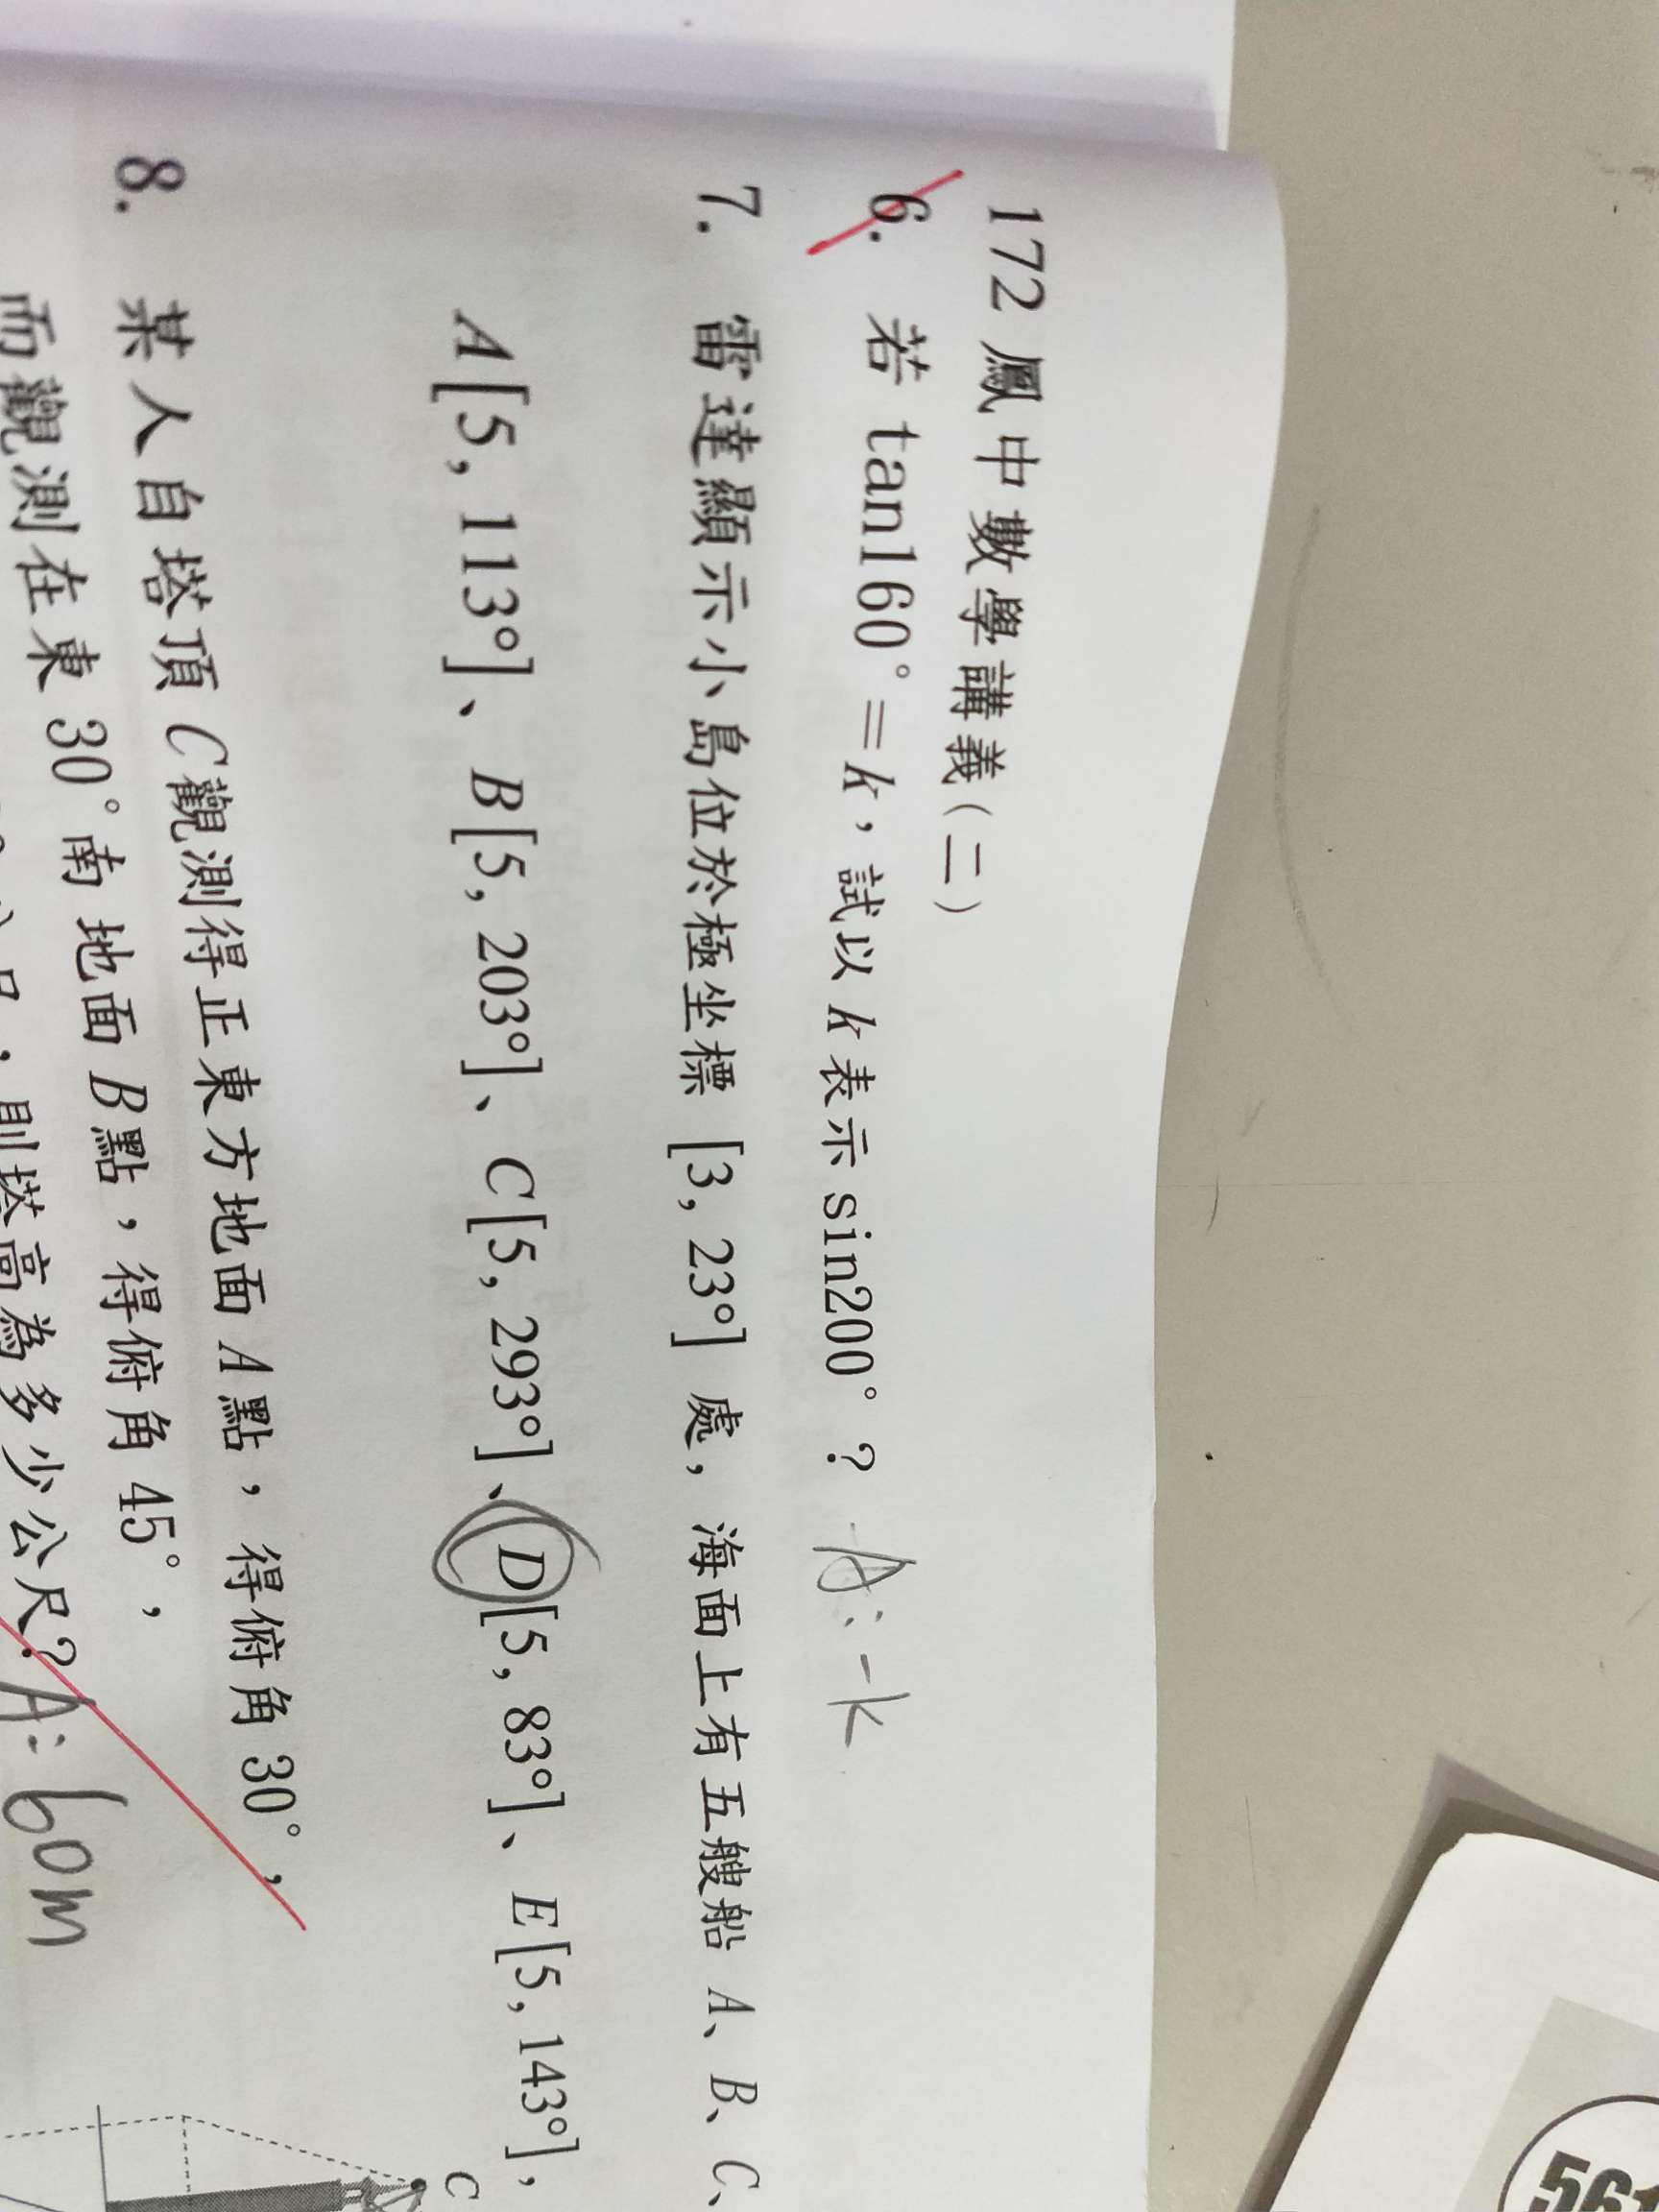 172 鳳中數學講義(二)
6. 若 tan160°=k,試以 k 表示 sin200°? A:-k
7. 雷達顯示小島位於極坐標 [3, 23°] 處,海面上有五艘船 A、B、C、
A[5, 113°]、B[5, 203°]、C[5, 293°]、D[5, 83°]、E[5, 143°],
8. 某人自塔頂 C 觀測得正東方地面 A 點,得俯角 30°,
而觀測在東 30° 南地面 B 點,得俯角 45°,
則塔高為多少公尺? A: 60m
C
561